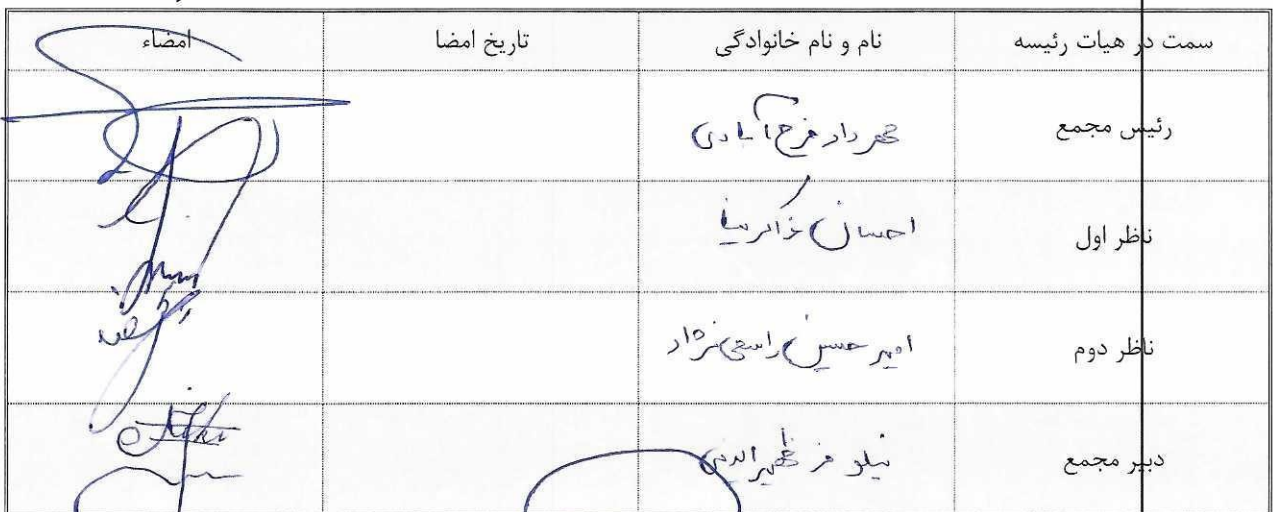 سمت در هیات رئیسه نام و نام خانوادگی تاریخ امضا امضاء
رئیس مجمع مهرداد فرج آبادی
ناظر اول احسان ذاکرنیا
ناظر دوم امیر حسین راسخی نژاد
دبیر مجمع نیلوفر ظهیرالدینی